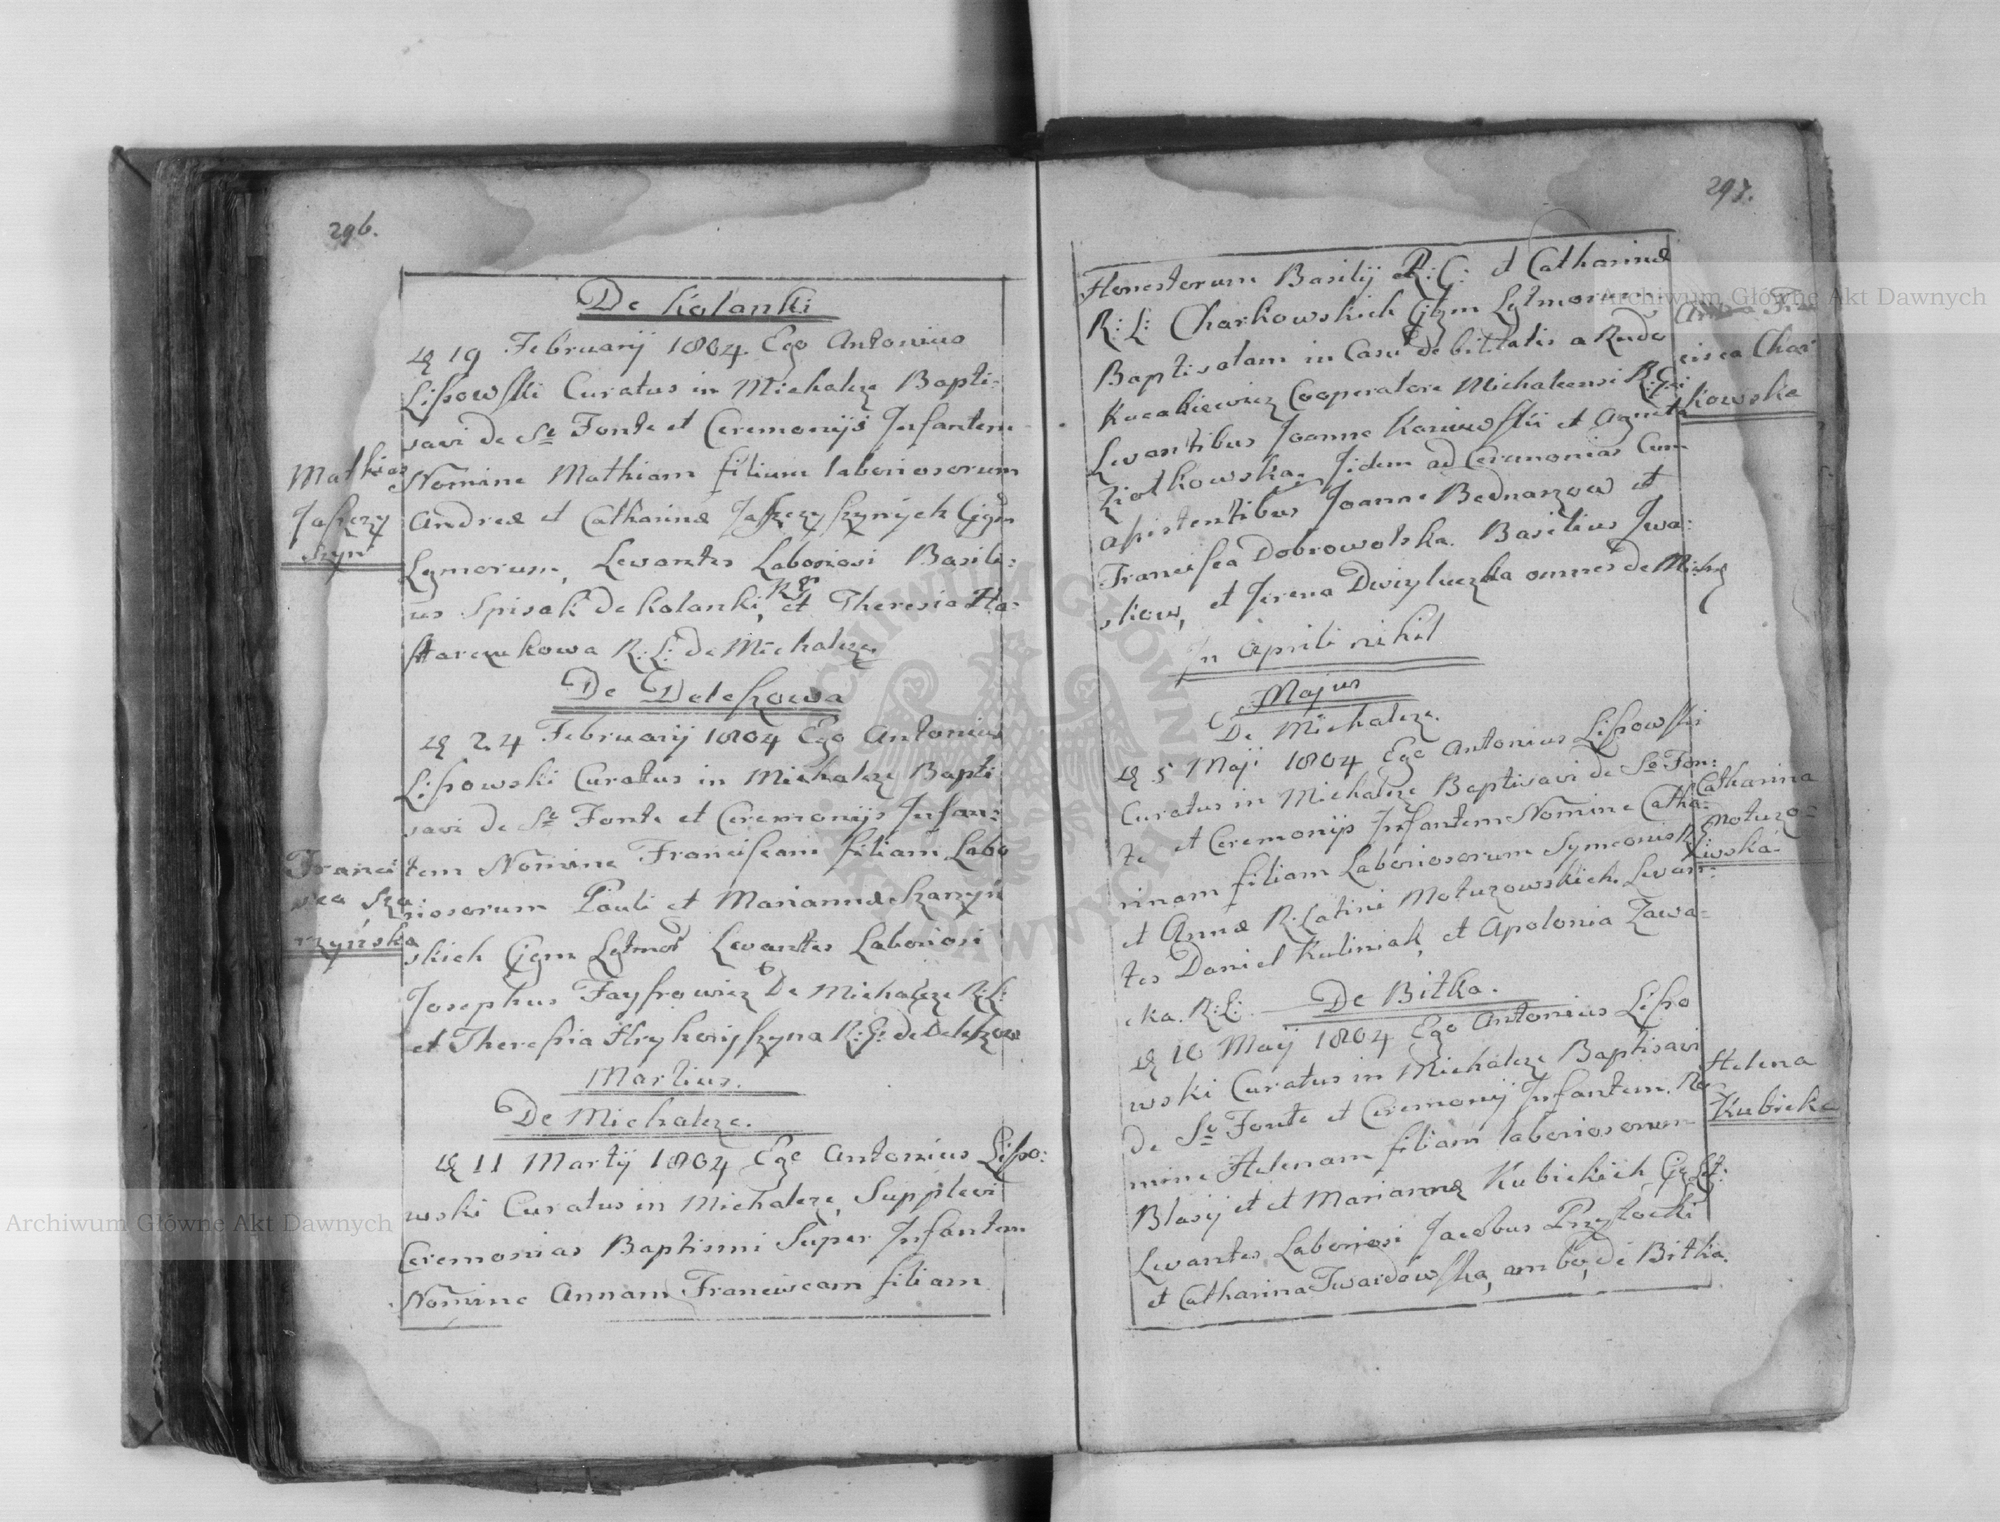 296.
De Kolanki
19 February 1804 Ego Antonius
Lissowski Curatus in Michalcze Bapti:
savi de Se Fonte et Ceremonijs Infantem
Mathias
Nomine Mathiam filium laboriosorum
Jaszczy
szyn
Andreæ et Catharinæ Jaszczyszynych Cjgm
Lgmorum, Levantes Laboriosi Basili:
us Spisak de Kolanki, R.G. et Theresia
Starczukowa R: L: de Michalcze
De Deleszowa
24 February 1804 Ego Antonius
Lissowski Curatus in Michalcze Bapti
savi de Se Fonte et Ceremonijs Infan:
Franci
tem Nomine Franciscam filiam Labo
riosorum Pauli et Mariannæ
skich Cjgm Lgtmor Levantes Laboriosi
Josephus Fayfrowicz De Michalcze R: L:
et Theressia Hryhoryszyna R: G: de Deleszow
Martius.
De Michalcze.
11 Martij 1804 Ego Antonius Lisso:
wski Curatus in Michalcze, Supplevi
Ceremonias Baptismi Super Infantem
Nomine Annam Franciscam filiam
297.
Honestorum Basilij R: G: et Catharinæ
R: L: Charkowskich Cjgm Lgtmorum
Anna Fran
Baptisatam in Casu debilitatis a Rndo
cisca Char
Kucakiewicz Cooperatore Michalcensi R: G:
kowska
Levantibus Joanne et
Ziotkowska. Iidem ad Ceremonias Cum
assistentibus Joanne Bednarzow et
Francisca Dobrowolska. Basilius Iwa:
skow, et Jrena omnes de Mich
In Aprili nihil
Majus
De Michalcze.
5 Maji 1804 Ego Antonius Lissowski
Curatus in Michalcze Baptisavi de Se Fon:
Catharina
te et Ceremonijs Infantem Nomine Catha:
Motuzo=
rinam filiam Laboriosorum Symeonis R: G:
wska
et Annæ R: Latini Motuzowskich. Levan:
tes Daniel Kuliniak, et Apolonia Zawa=
cka. R: L:
De Bitka.
10 Maij 1804 Ego Antonius Lisso
wski Curatus in Michalcze Baptisavi
Helena
de Se Fonte et Ceremonij Infantem. No
Kubicka
mine Helenam filiam laboriosorum
Blasij et et Mariannæ Kubickich
Levantes Laboriosi Jacobus Przytocki
et Catharina Twardowska, ambo, de Bitka.
Archiwum Główne Akt Dawnych
Archiwum Główne Akt Dawnych
ARCHIWUM GŁÓWNE AKT DAWNYCH